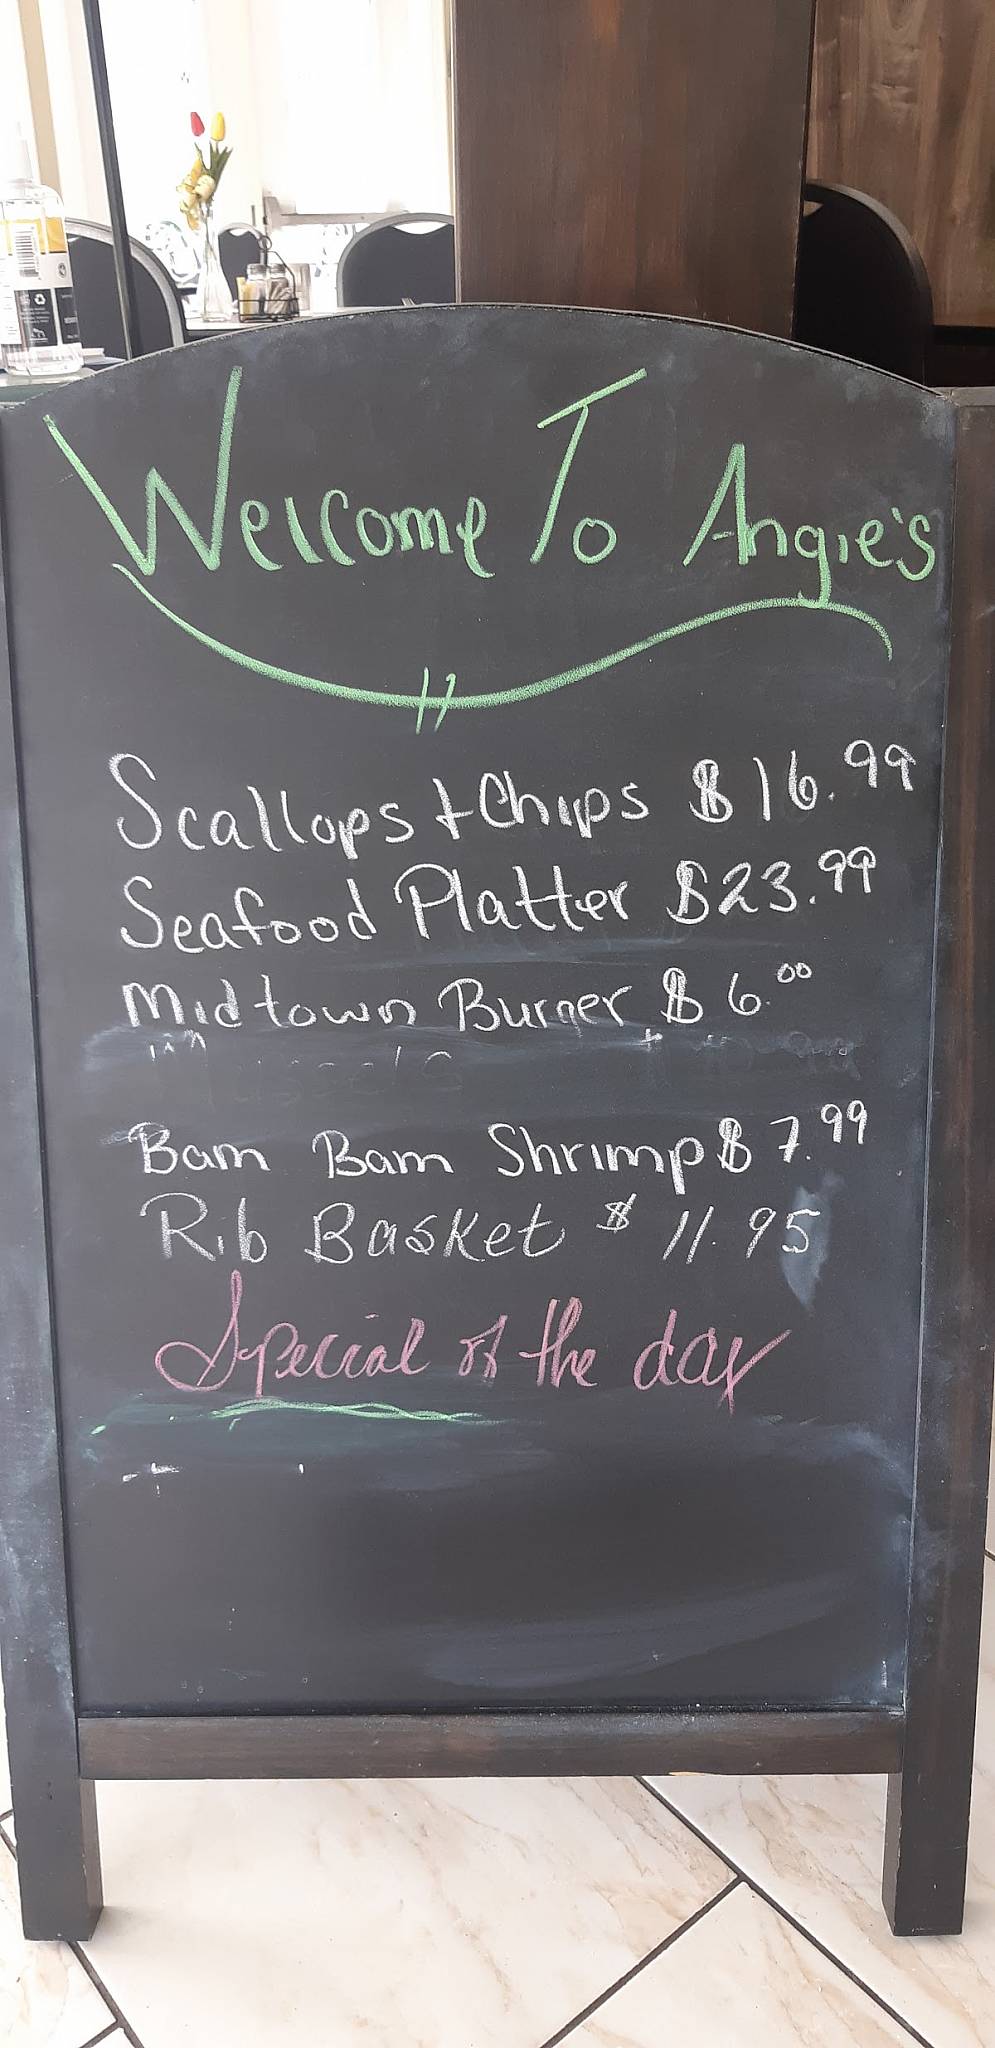 Welcome To Angie's
Scallops + Chips $16.99
Seafood Platter $23.99
Midtown Burger $6.00
Bam Bam Shrimp $7.99
Rib Basket $11.95
Special of the day